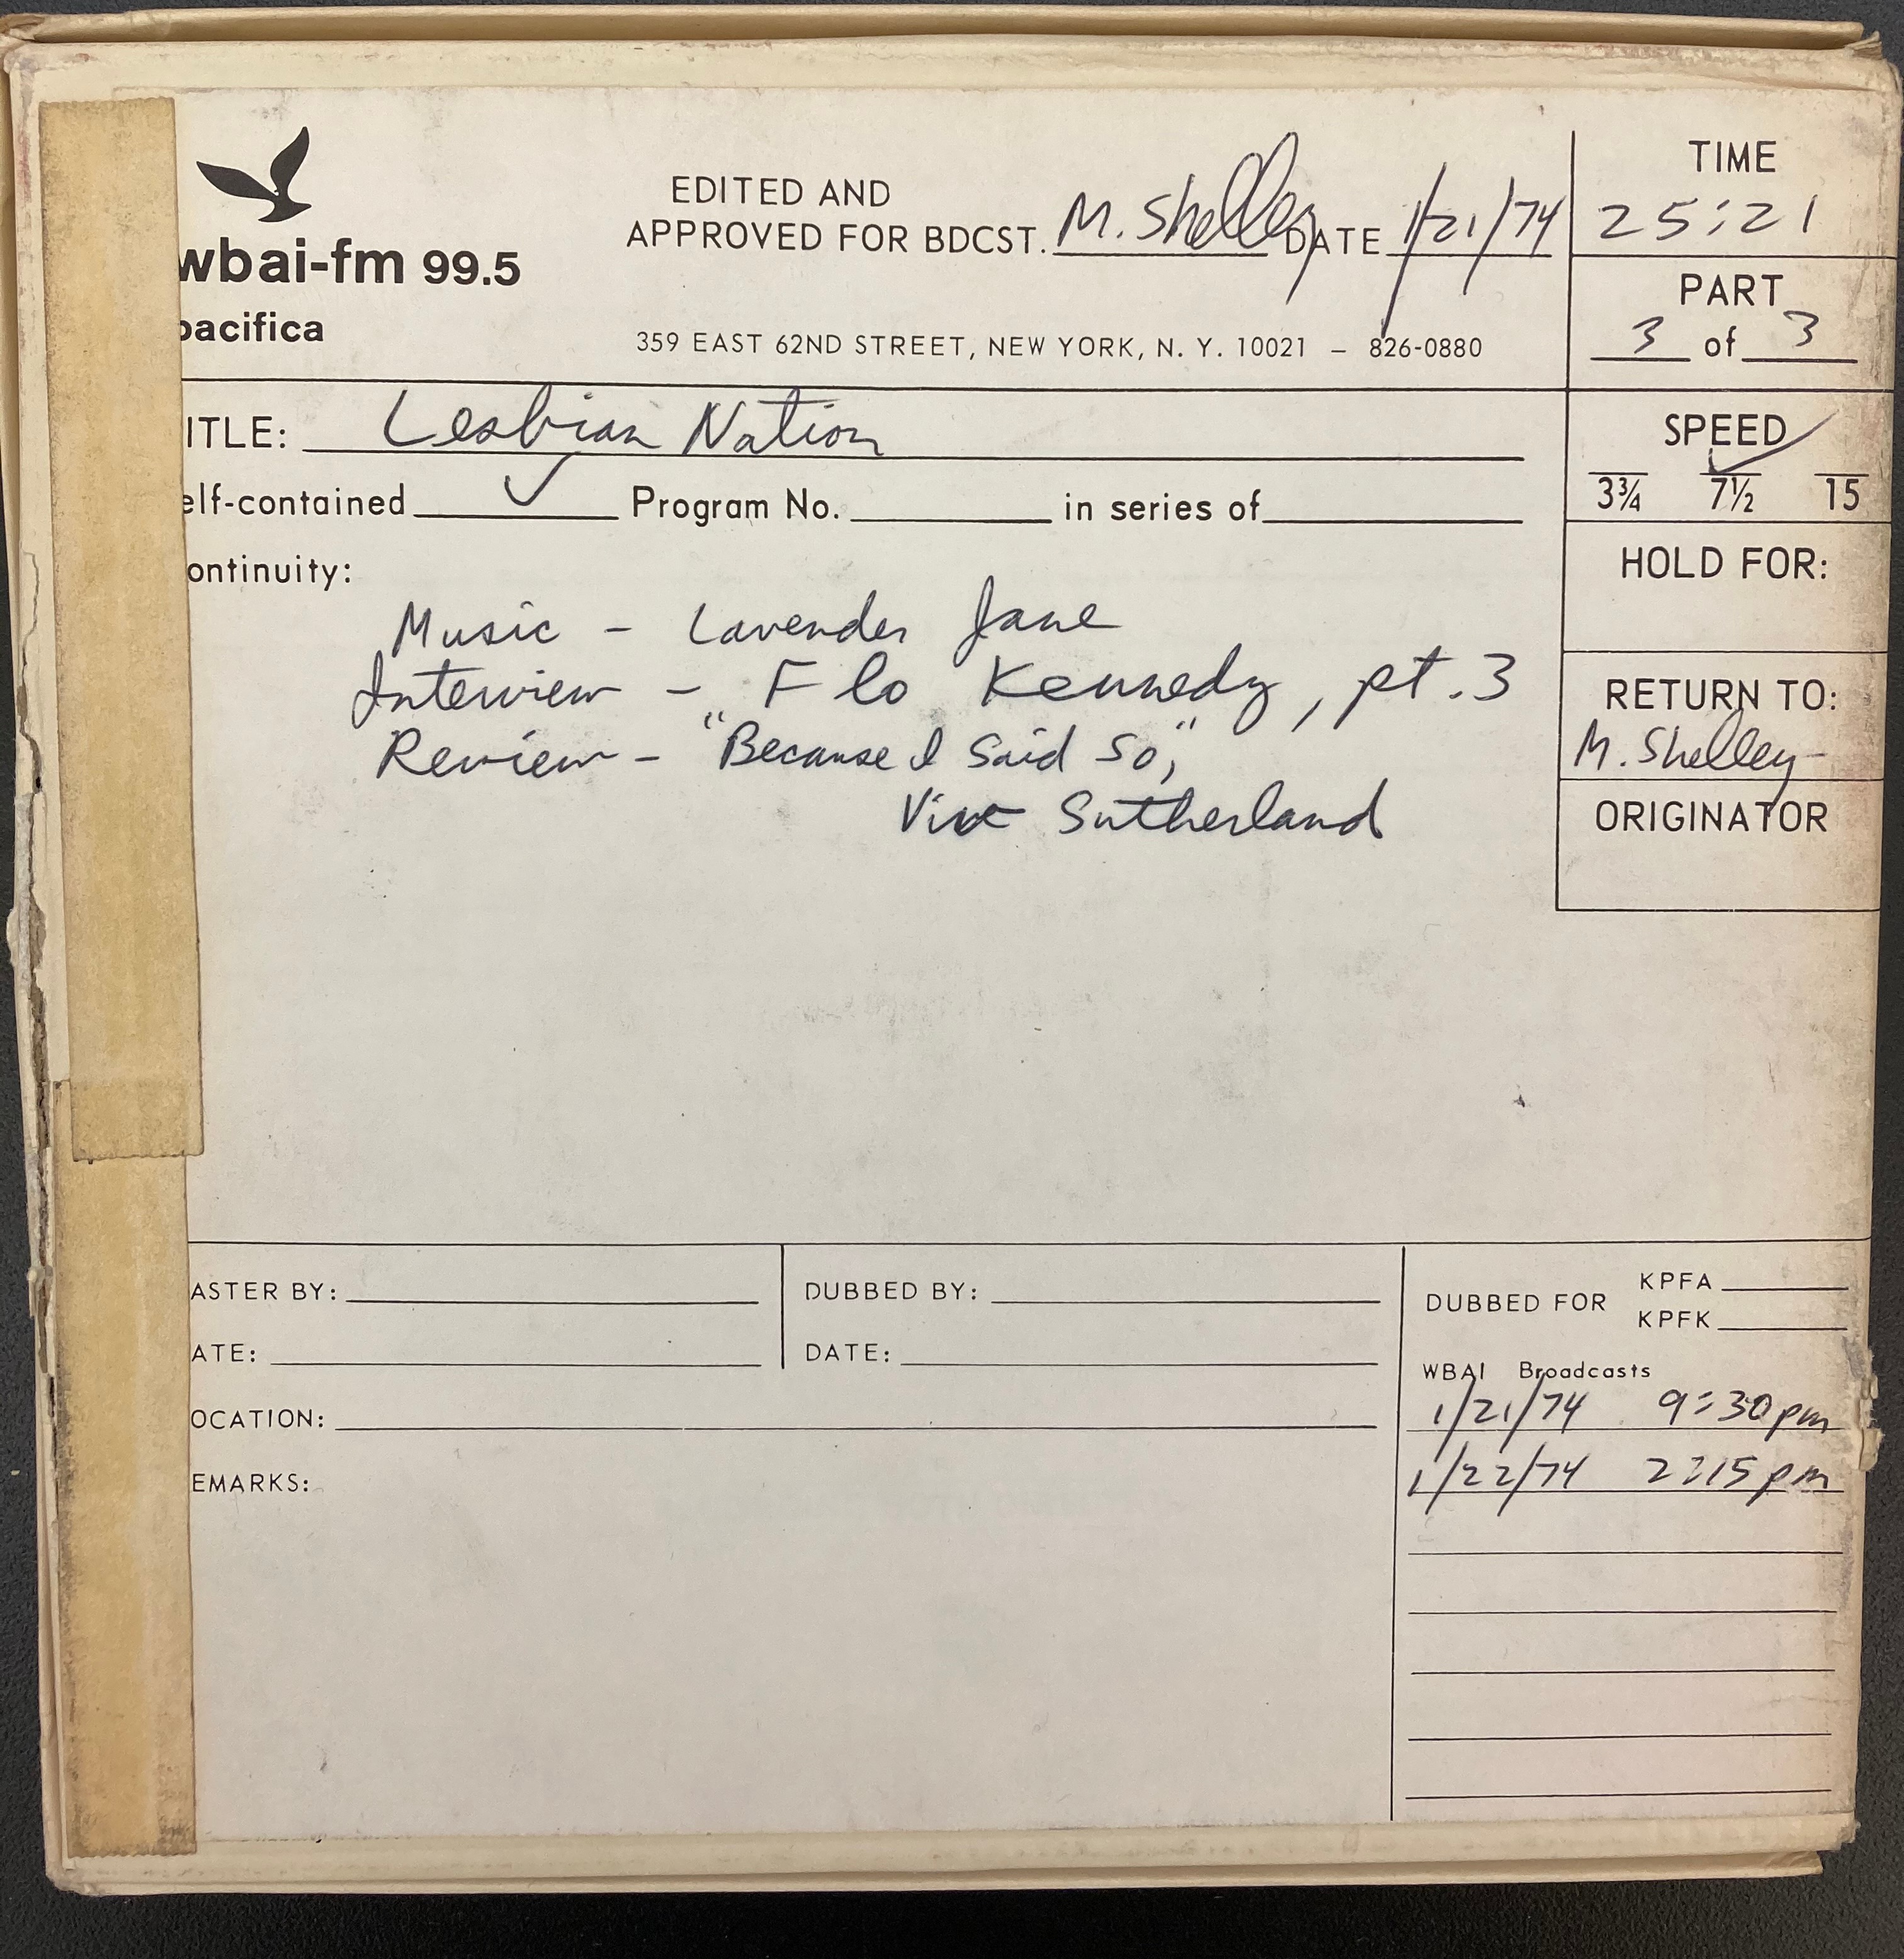 wbai-fm 99.5
pacifica
EDITED AND
APPROVED FOR BDCST. M. Shelley DATE 1/21/74
359 EAST 62ND STREET, NEW YORK, N. Y. 10021 – 826-0880
TIME
25:21
PART
3 of 3
ITLE: Lesbian Nation
elf-contained ✓ Program No. in series of
SPEED
3¾ 7½ ✓ 15
HOLD FOR:
RETURN TO:
M. Shelley
ORIGINATOR
ontinuity:
Music - Lavender Jane
Interview - Flo Kennedy, pt. 3
Review - "Because I Said So,"
Sutherland
ASTER BY:
ATE:
DUBBED BY:
DATE:
OCATION:
EMARKS:
DUBBED FOR KPFA
KPFK
WBAI Broadcasts
1/21/74 9:30pm
1/22/74 2:15pm